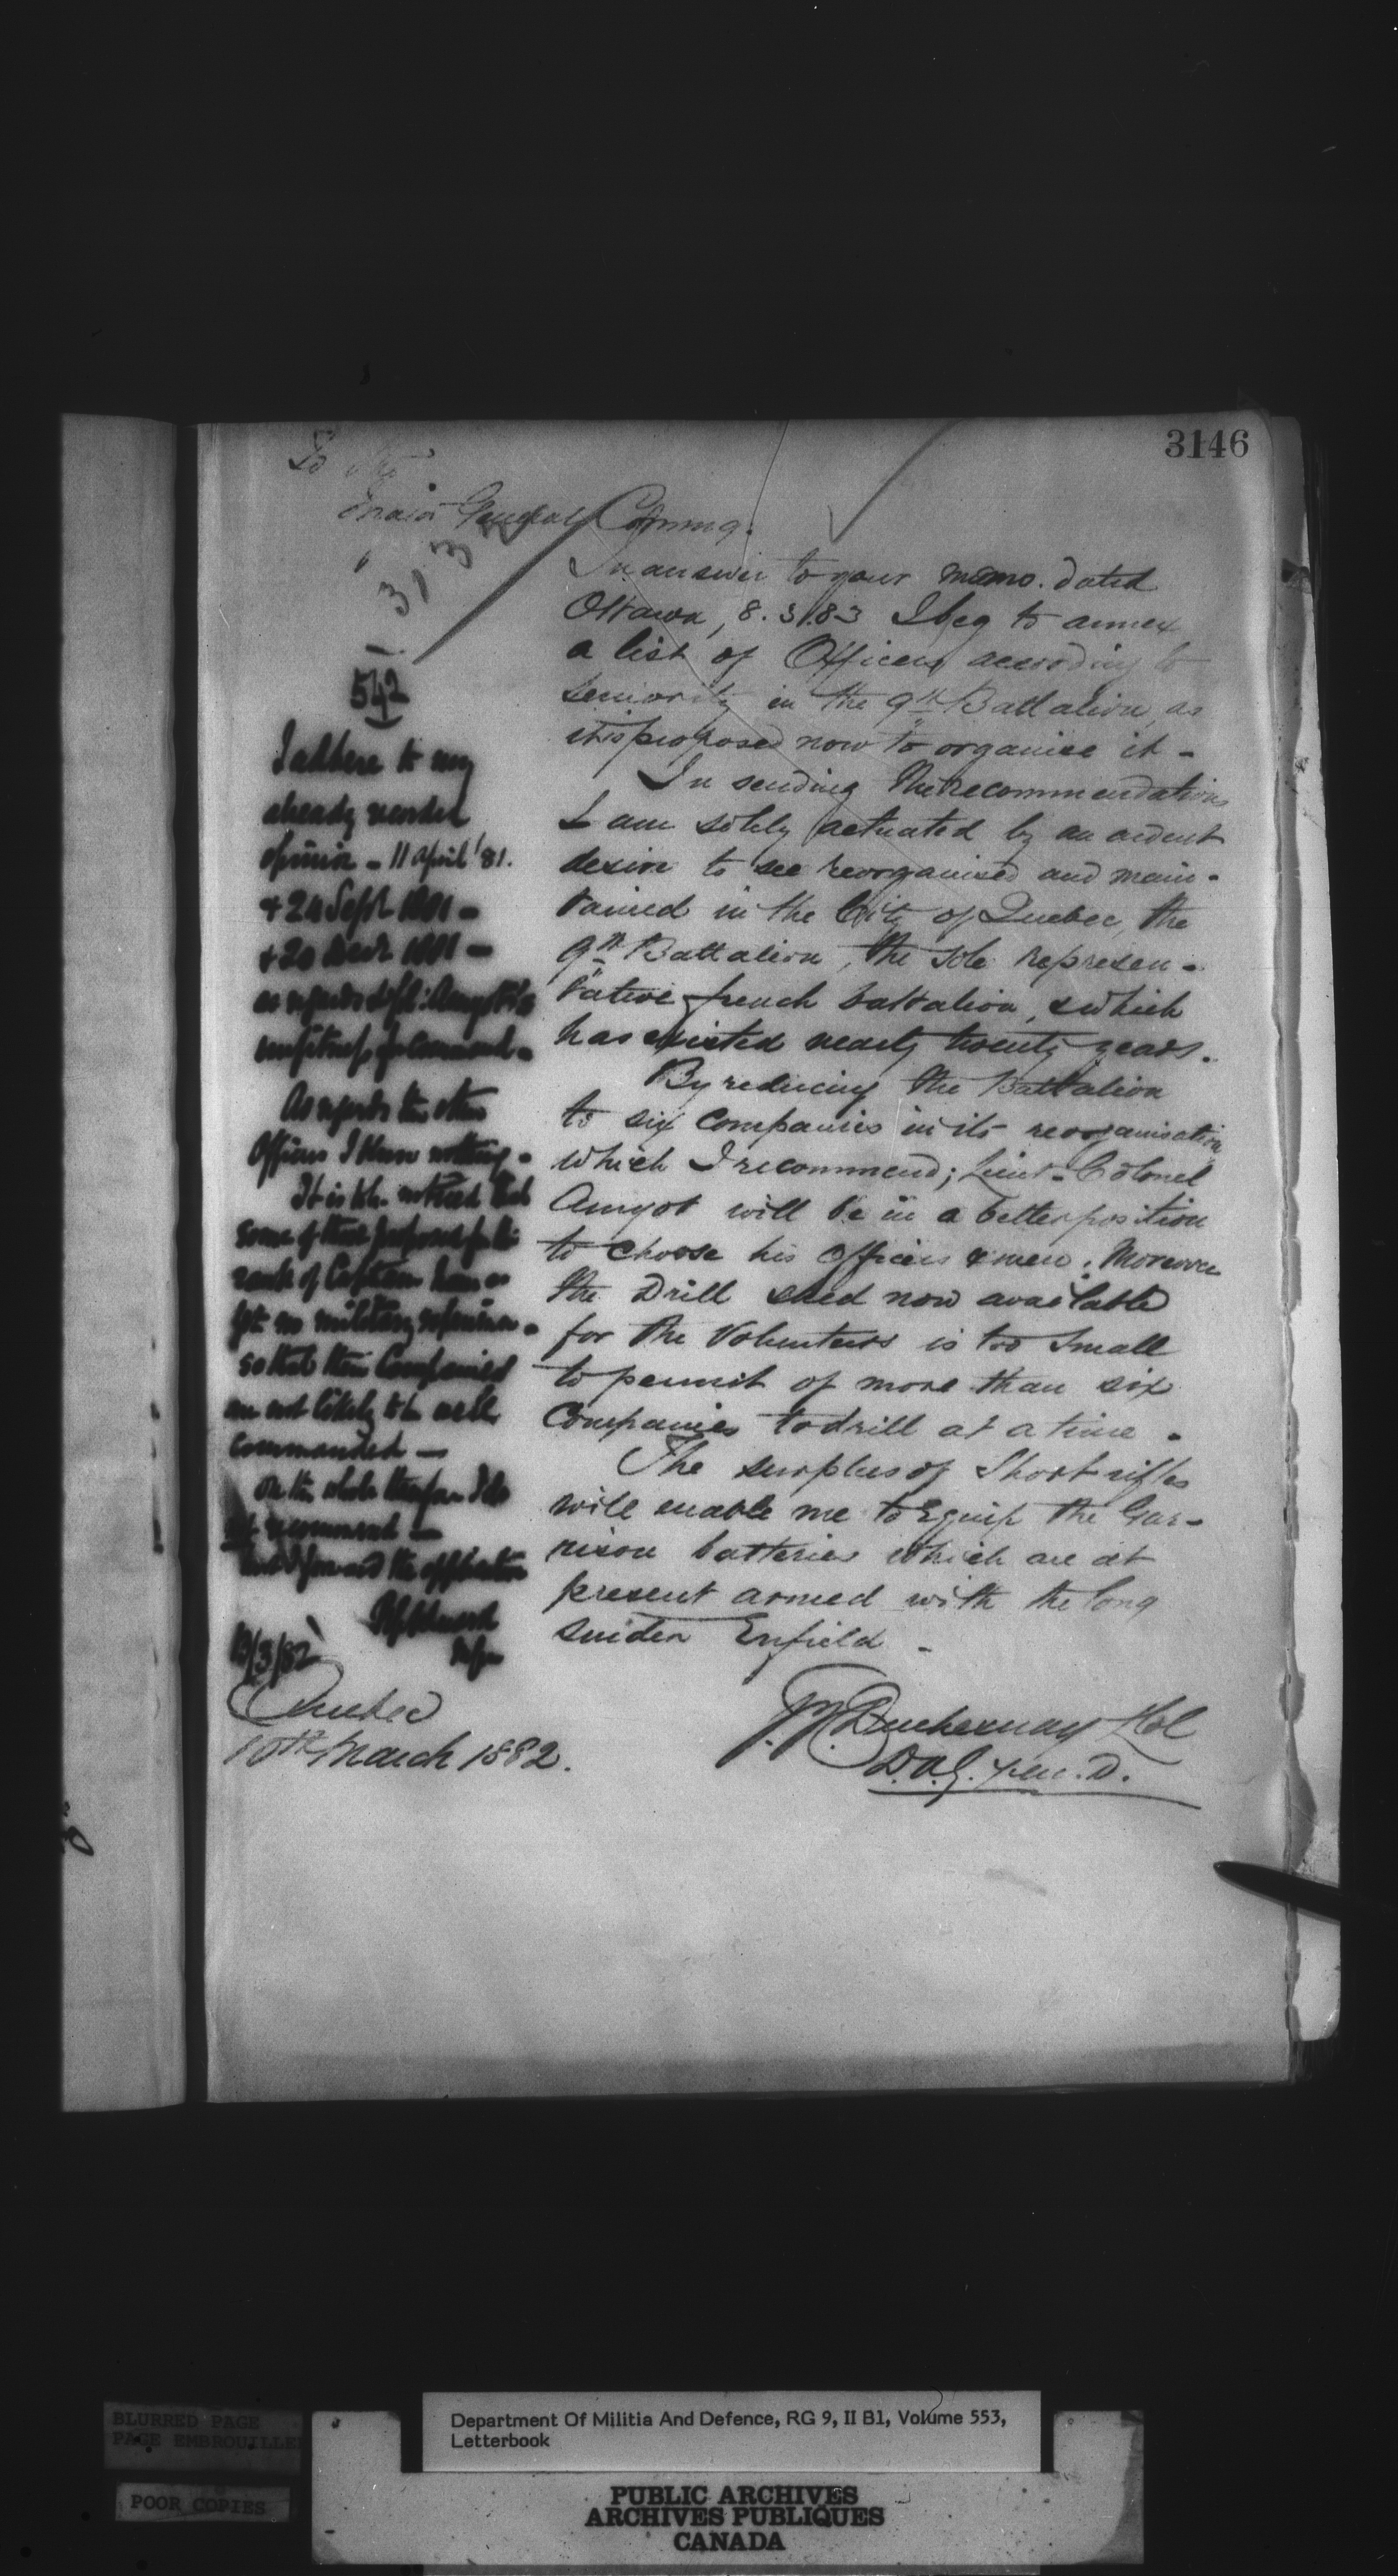 3146
To the
Major General Commg.
3137
542
In answer to your memo. dated
Ottawa, 8.3.83 I beg to annex
a list of Officers according to
seniority in the 9th Battalion, as
it is proposed now to organise it -
In sending the recommendations
I am solely actuated by an ardent
desire to see reorganised and main-
tained in the City of Quebec, the
9th Battalion, the sole represen-
tative french battalion, which
has existed nearly twenty years.
By reducing the Battalion
to six companies in its reorganisation
which I recommend; Lieut-Colonel
Amyot will be in a better position
to choose his officers & men. Moreover
the Drill shed now available
for the Volunteers is too small
to permit of more than six
Companies to drill at a time -
The surplus of Short rifles
will enable me to Equip the Gar-
rison batteries which are at
present armed with the long
snider Enfield -
Duchesnay Lt Col
D.A.G.
I adhere to my
already recorded
opinion - 11 April '81.
+ 24 Sept 1881 -
+ 20 Decr 1881 -
as regards Lt Col: Amyot's
unfitness for Command -
As regards the other
Officers I know nothing -
It is to be noticed that
some of those proposed for the
rank of Captain have as
yet no military experience -
so that their Companies
are not likely to be well
commanded -
On the whole therefore I do
not recommend -
but I forward the application
/3/82
Quebec
10th March 1882.
BLURRED PAGE
PAGE EMBROUILLEE
POOR COPIES
Department Of Militia And Defence, RG 9, II B1, Volume 553,
Letterbook
PUBLIC ARCHIVES
ARCHIVES PUBLIQUES
CANADA